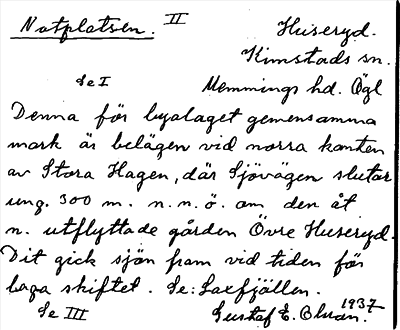 Notplatsen. II Huseryd.
Kimstads sn.
Se I Memmings hd. Ögl
Denna för byalaget gemensamma
mark är belägen vid norra kanten
av Stora Hagen, där Sjövägen slutar
ung. 300 m. n. n. ö. om den åt
n. utflyttade gården Övre Huseryd.
Dit gick sjön fram vid tiden för
laga skiftet. Se: Laxfjällen.
Se III Gustaf E. Olson. 1937